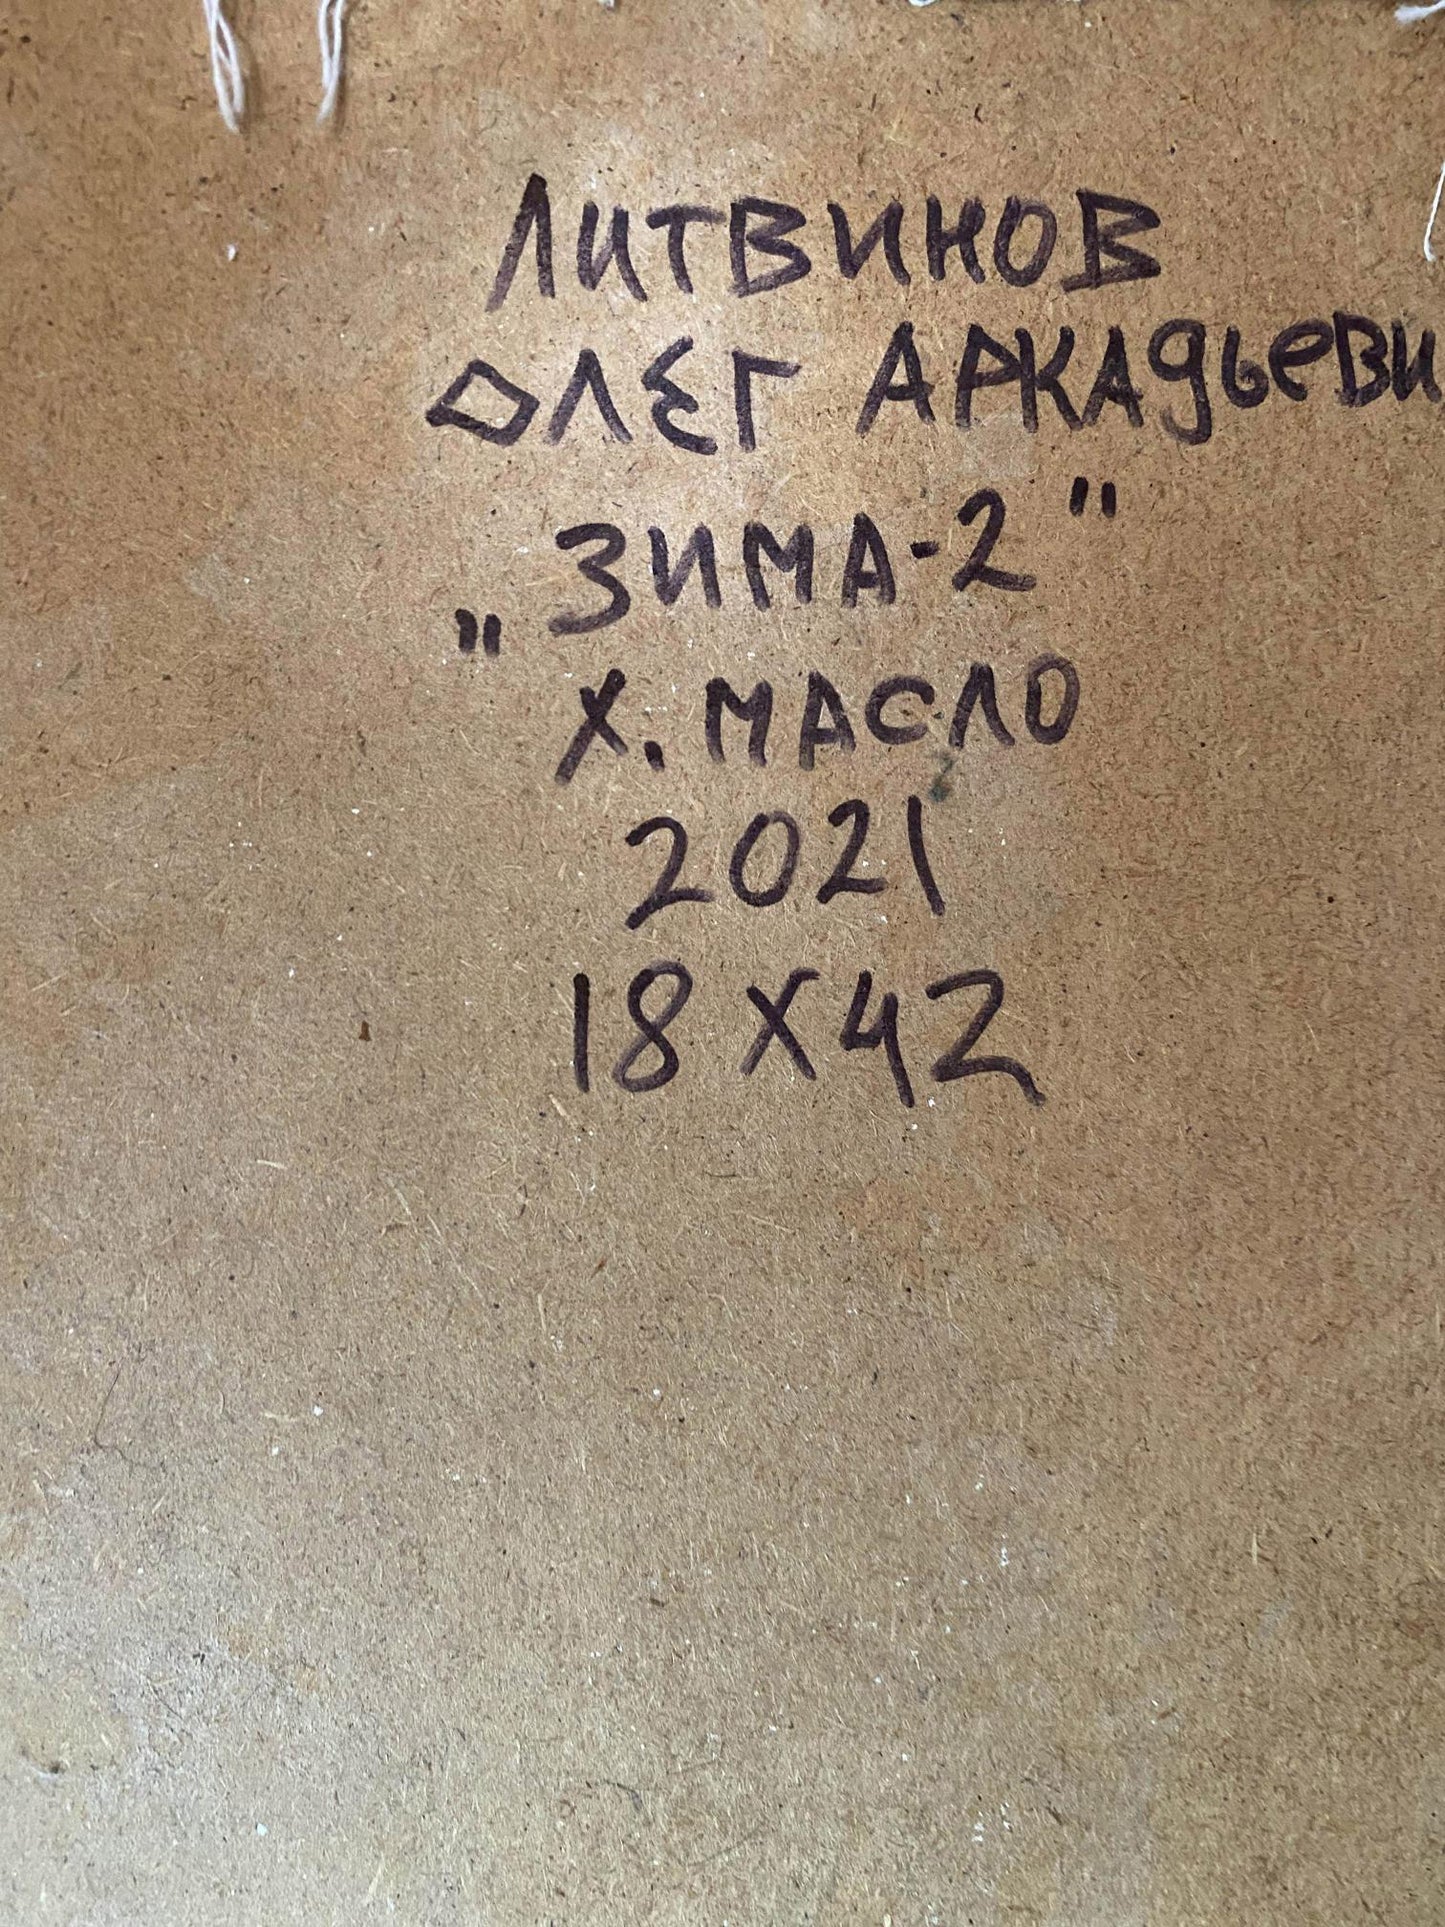 ЛИТВИНОВ
ОЛЕГ АРКАДЬЕВИ
„ЗИМА-2"
Х. МАСЛО
2021
18 Х 42